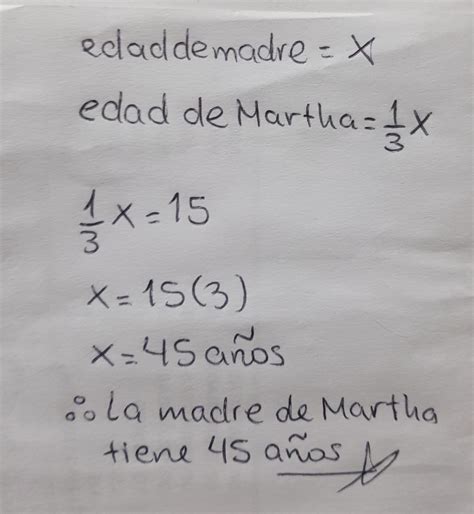 edad de madre = x
edad de Martha = 1/3 x
1/3 x = 15
x = 15(3)
x = 45 años
∴ La madre de Martha
tiene 45 años